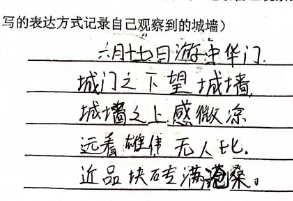 写的表达方式记录自己观察到的城墙)
六月十七日游中华门.
城门之下望城墙,
城墙之上感微凉
远看雄伟无人比.
近品块砖满沧桑。